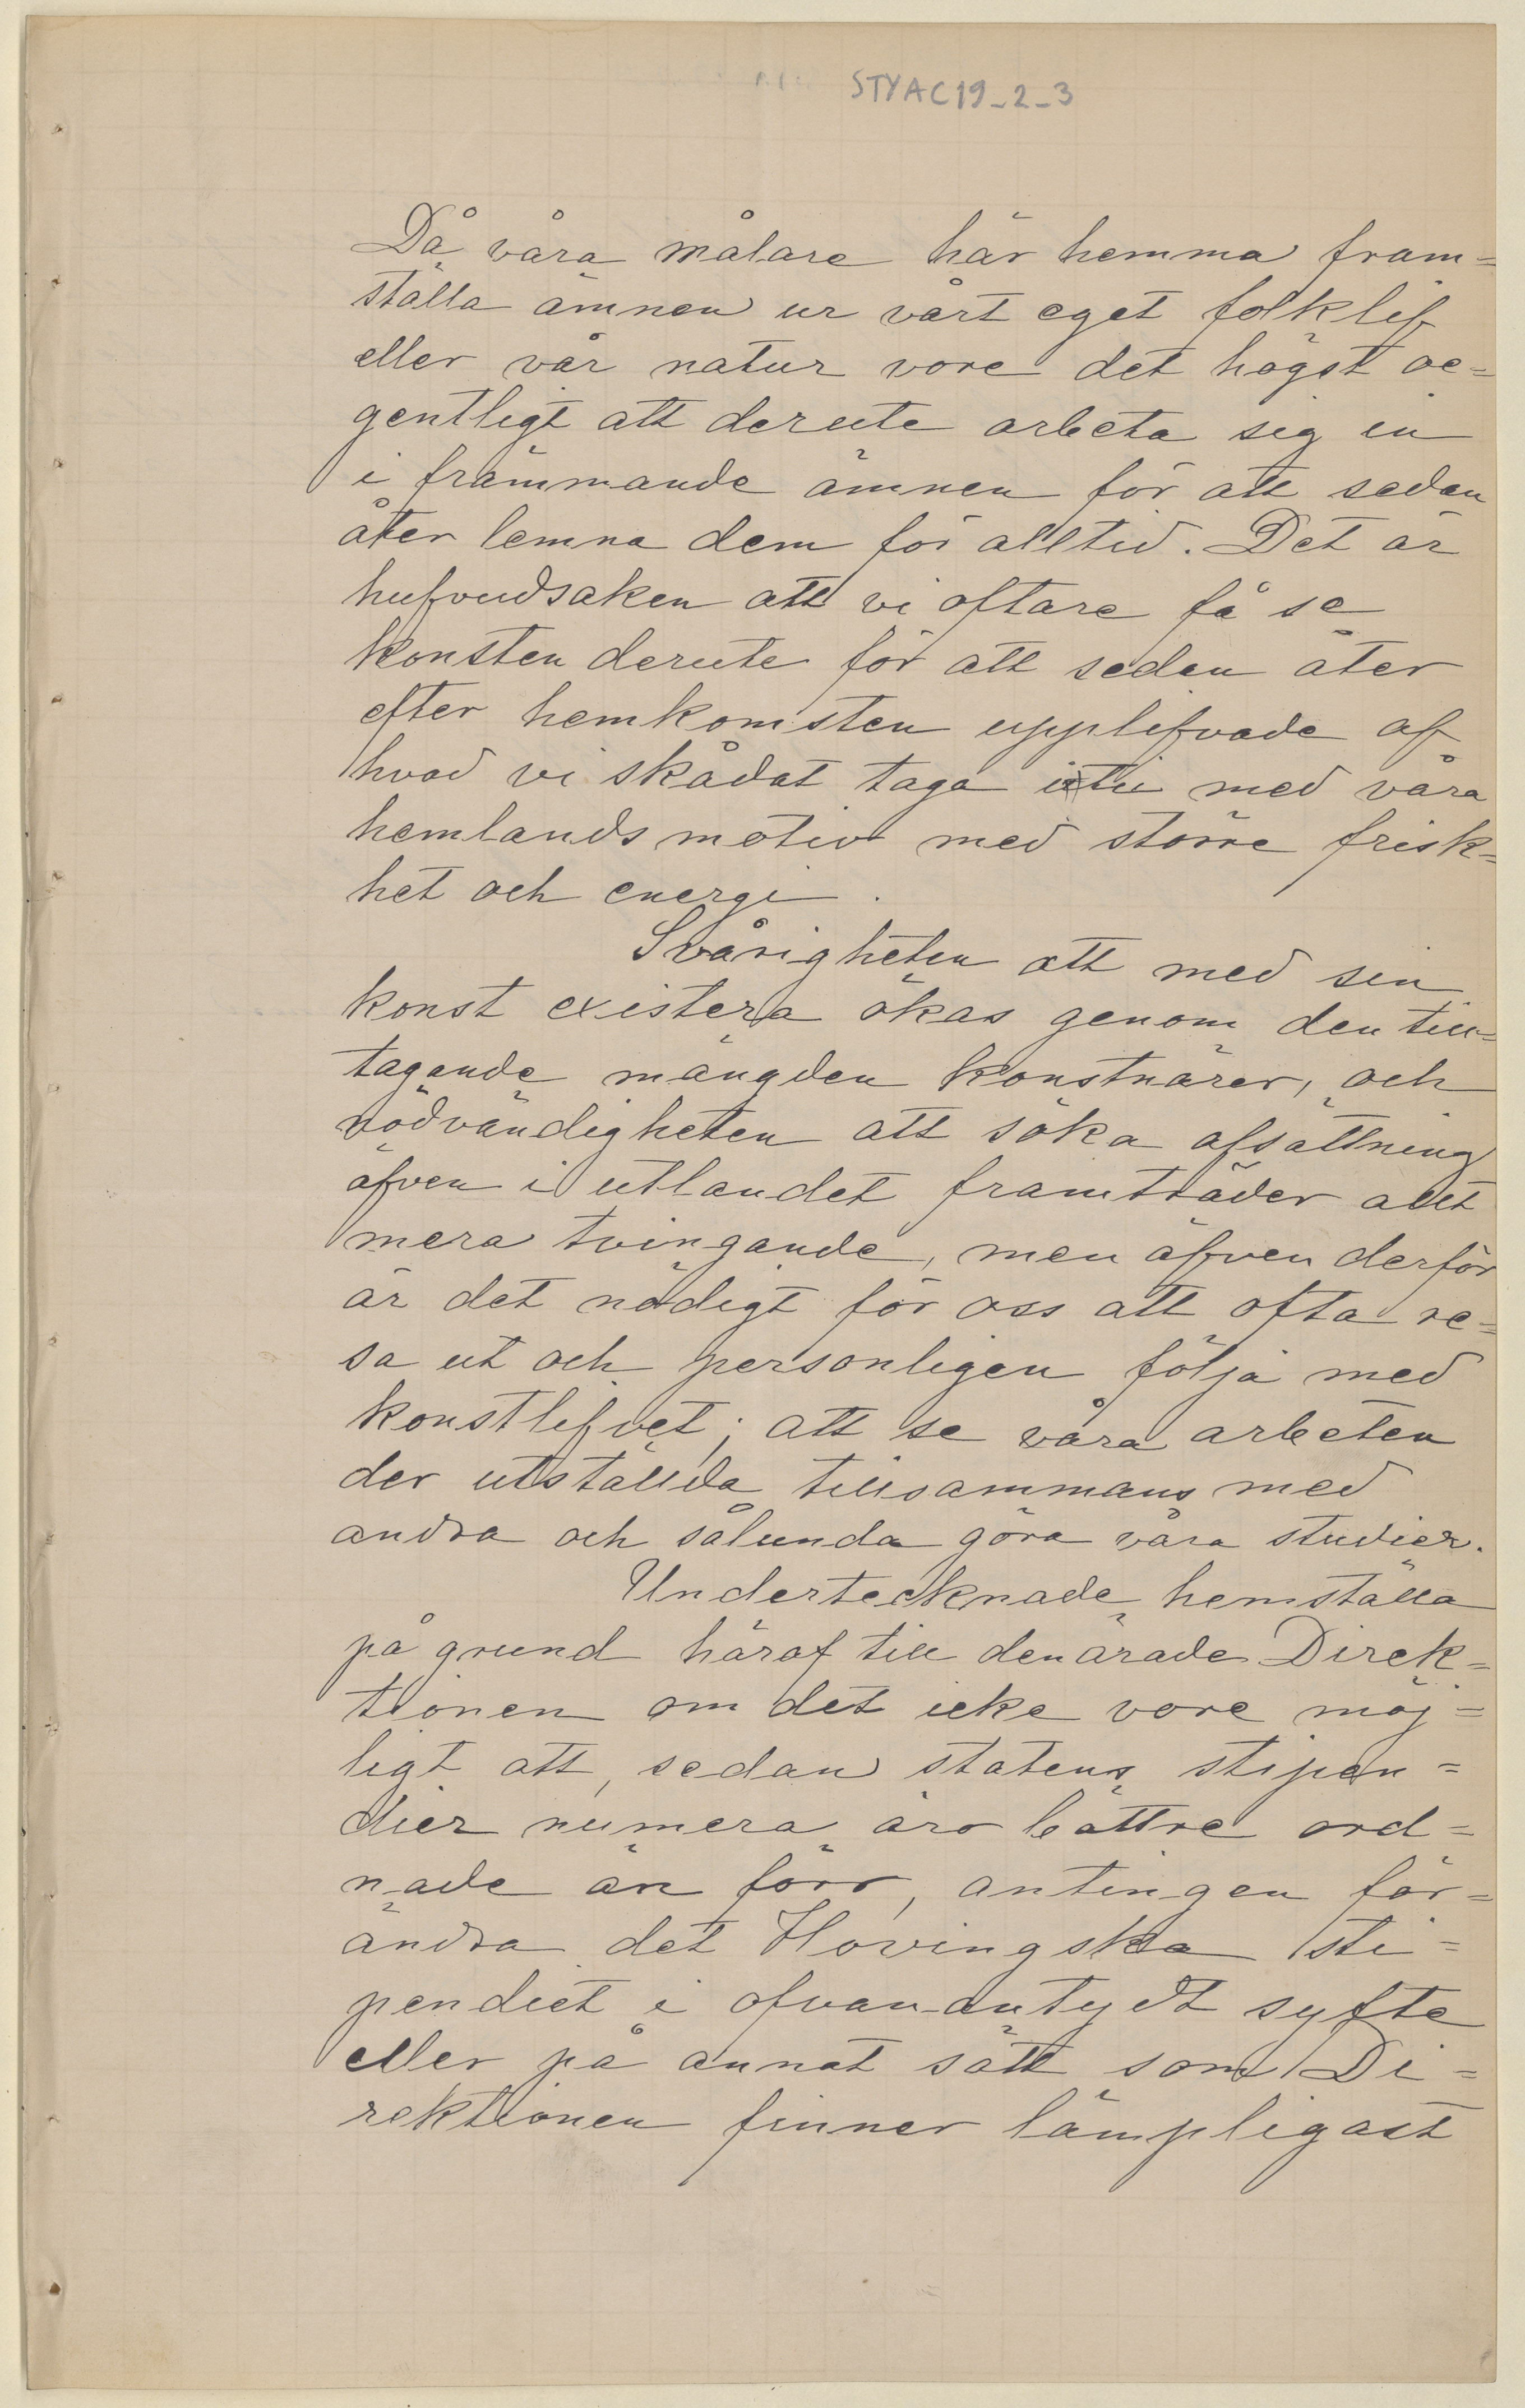 STYAC19_2_3
Då våra målare här hemma fram=
ställa ämnen ur vårt eget folklif
eller vår natur vore det högst oe=
gentligt att derute arbeta sig in
i främmande ämnen för att sedan
åter lemna dem för alltid. Det är
hufvudsaken att vi oftare få se
konsten derute för att sedan åter
efter hemkomsten upplifvade af
hvad vi skådat taga itu med våra
hemlandsmotiv med större frisk=
het och energi.
Svårigheten att med sin
konst existera ökas genom den till=
tagande mängden konstnärer, och
nödvändigheten att söka afsättning
äfven i utlandet framträder allt
mera tvingande, men äfven derför
är det nödigt för oss att ofta re=
sa ut och personligen följa med
konstlifvet; att se våra arbeten
der utställda tillsammans med
andra och sålunda göra våra studier.
Undertecknade hemställa
på grund häraf till den ärade Direk=
tionen om det icke vore möj=
ligt att, sedan statens stipen=
dier numera äro bättre ord=
nade än förr, antingen för=
ändra det Hovingska sti=
pendiet i ofvanantydt syfte
eller på annat sätt som Di=
rektionen finner lämpligast